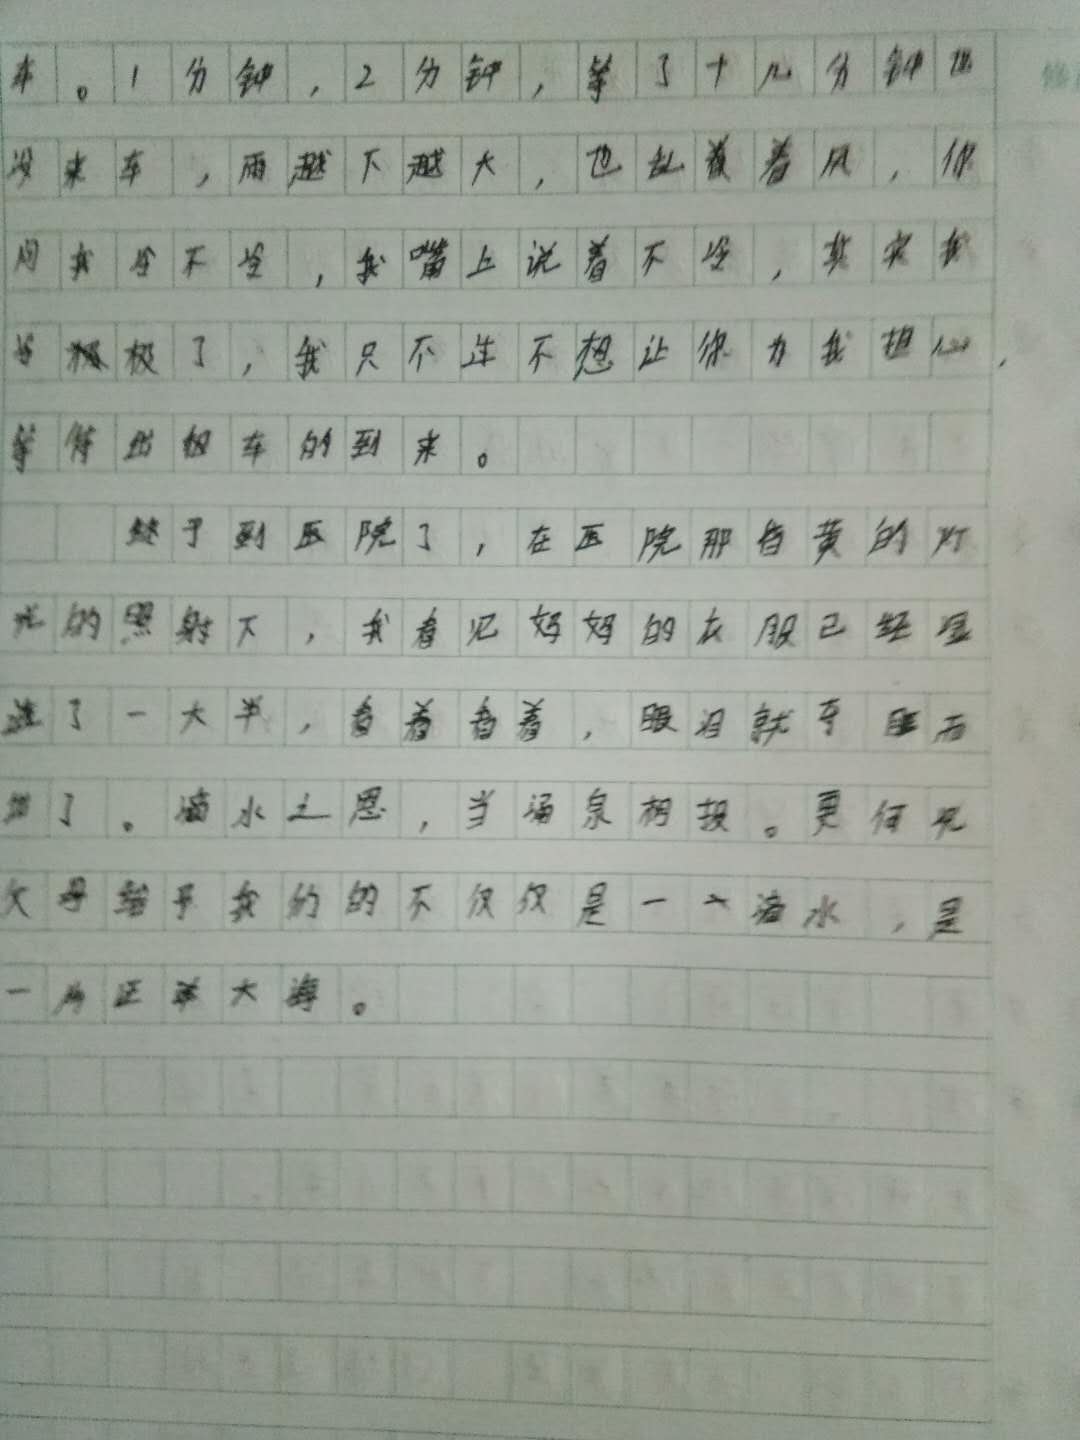 车。1分钟,2分钟,等了十几分钟也
没来车,雨越下越大,也乱着着风,你
问我冷不冷,我嘴上说着不冷,其实我
冷极了,我只不过不想让你为我担心,
等待出租车的到来。
终于到医院了,在医院那昏黄的灯
光的照射下,我看见妈妈的衣服已经湿
了一大半,看着看着,眼泪就夺眶而
出了。滴水之恩,当涌泉相报。更何况
父母给予我们的不仅仅是一滴水,是
一片汪洋大海。